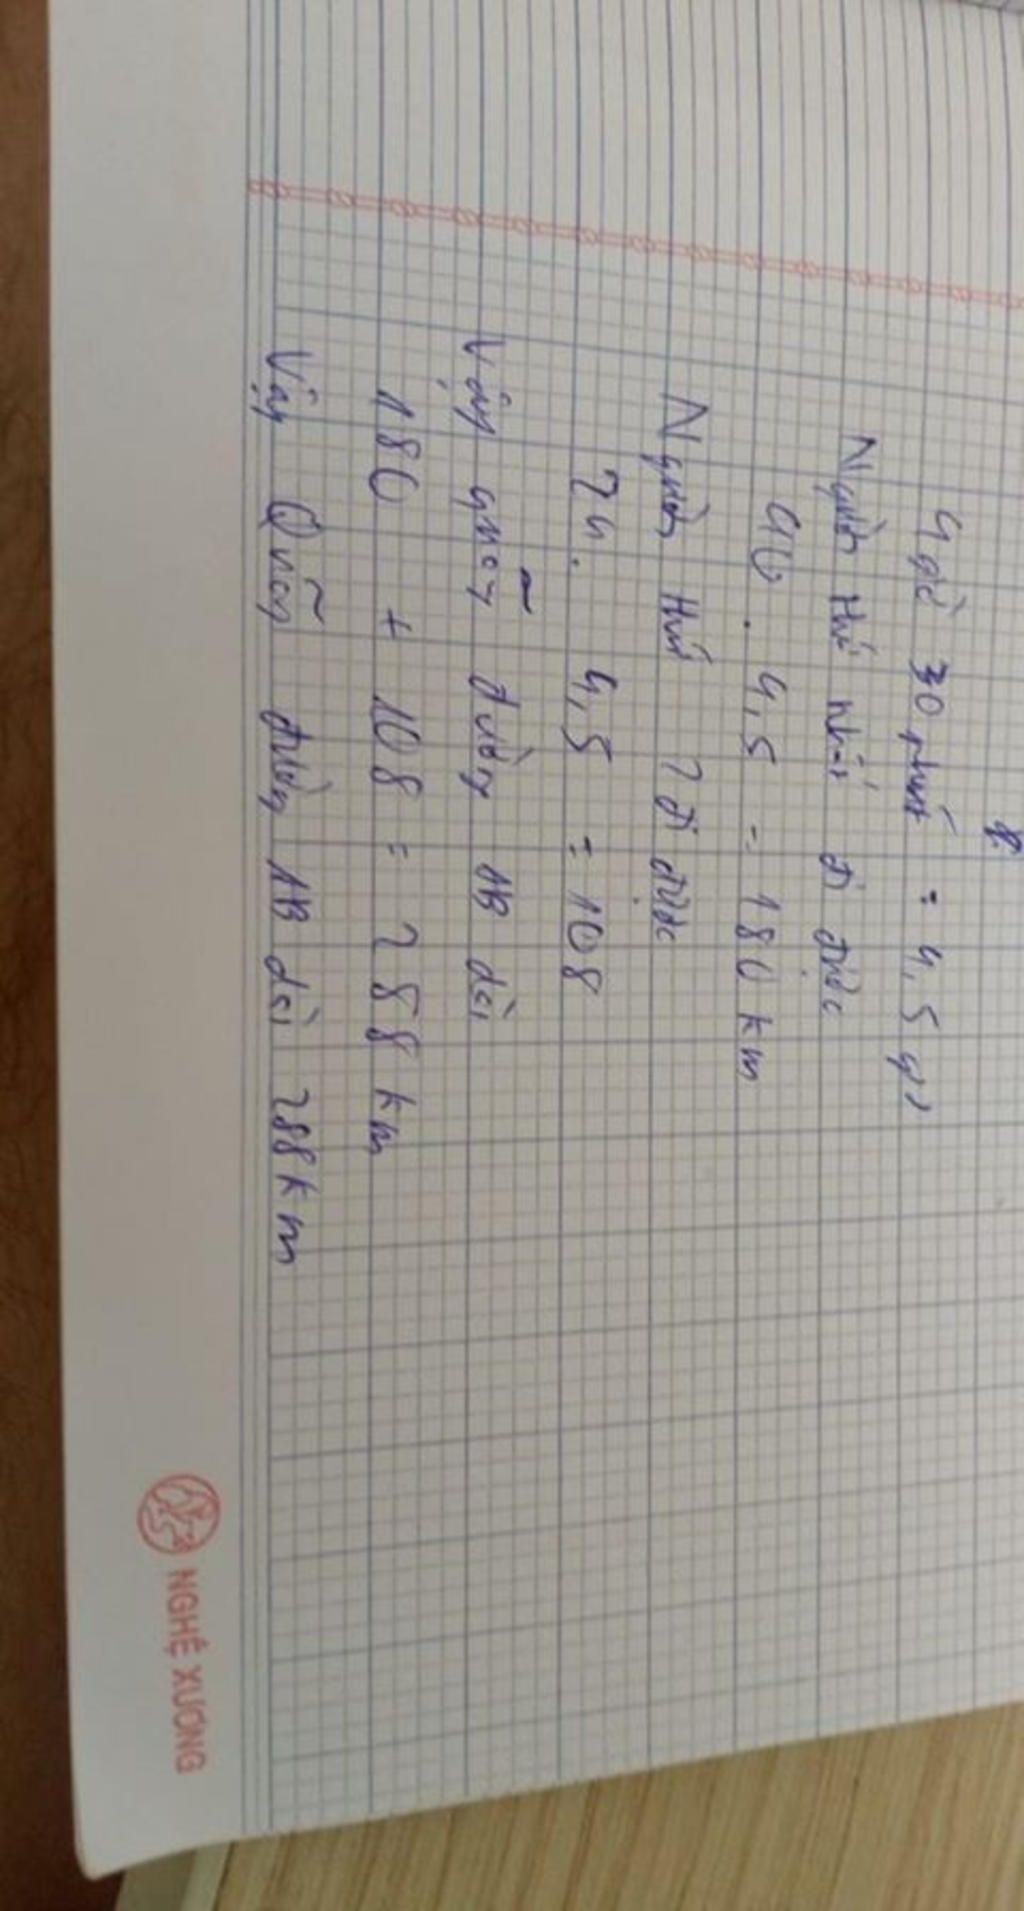 4 giờ 30 phút = 4,5 giờ
Người thứ nhất đi được
40 . 4,5 = 180 km
Người thứ 2 đi được
24 . 4,5 = 108
Vậy quãng đường AB dài
180 + 108 = 288 km
Vậy Quãng đường AB dài 288 km
NGHỆ XƯƠNG